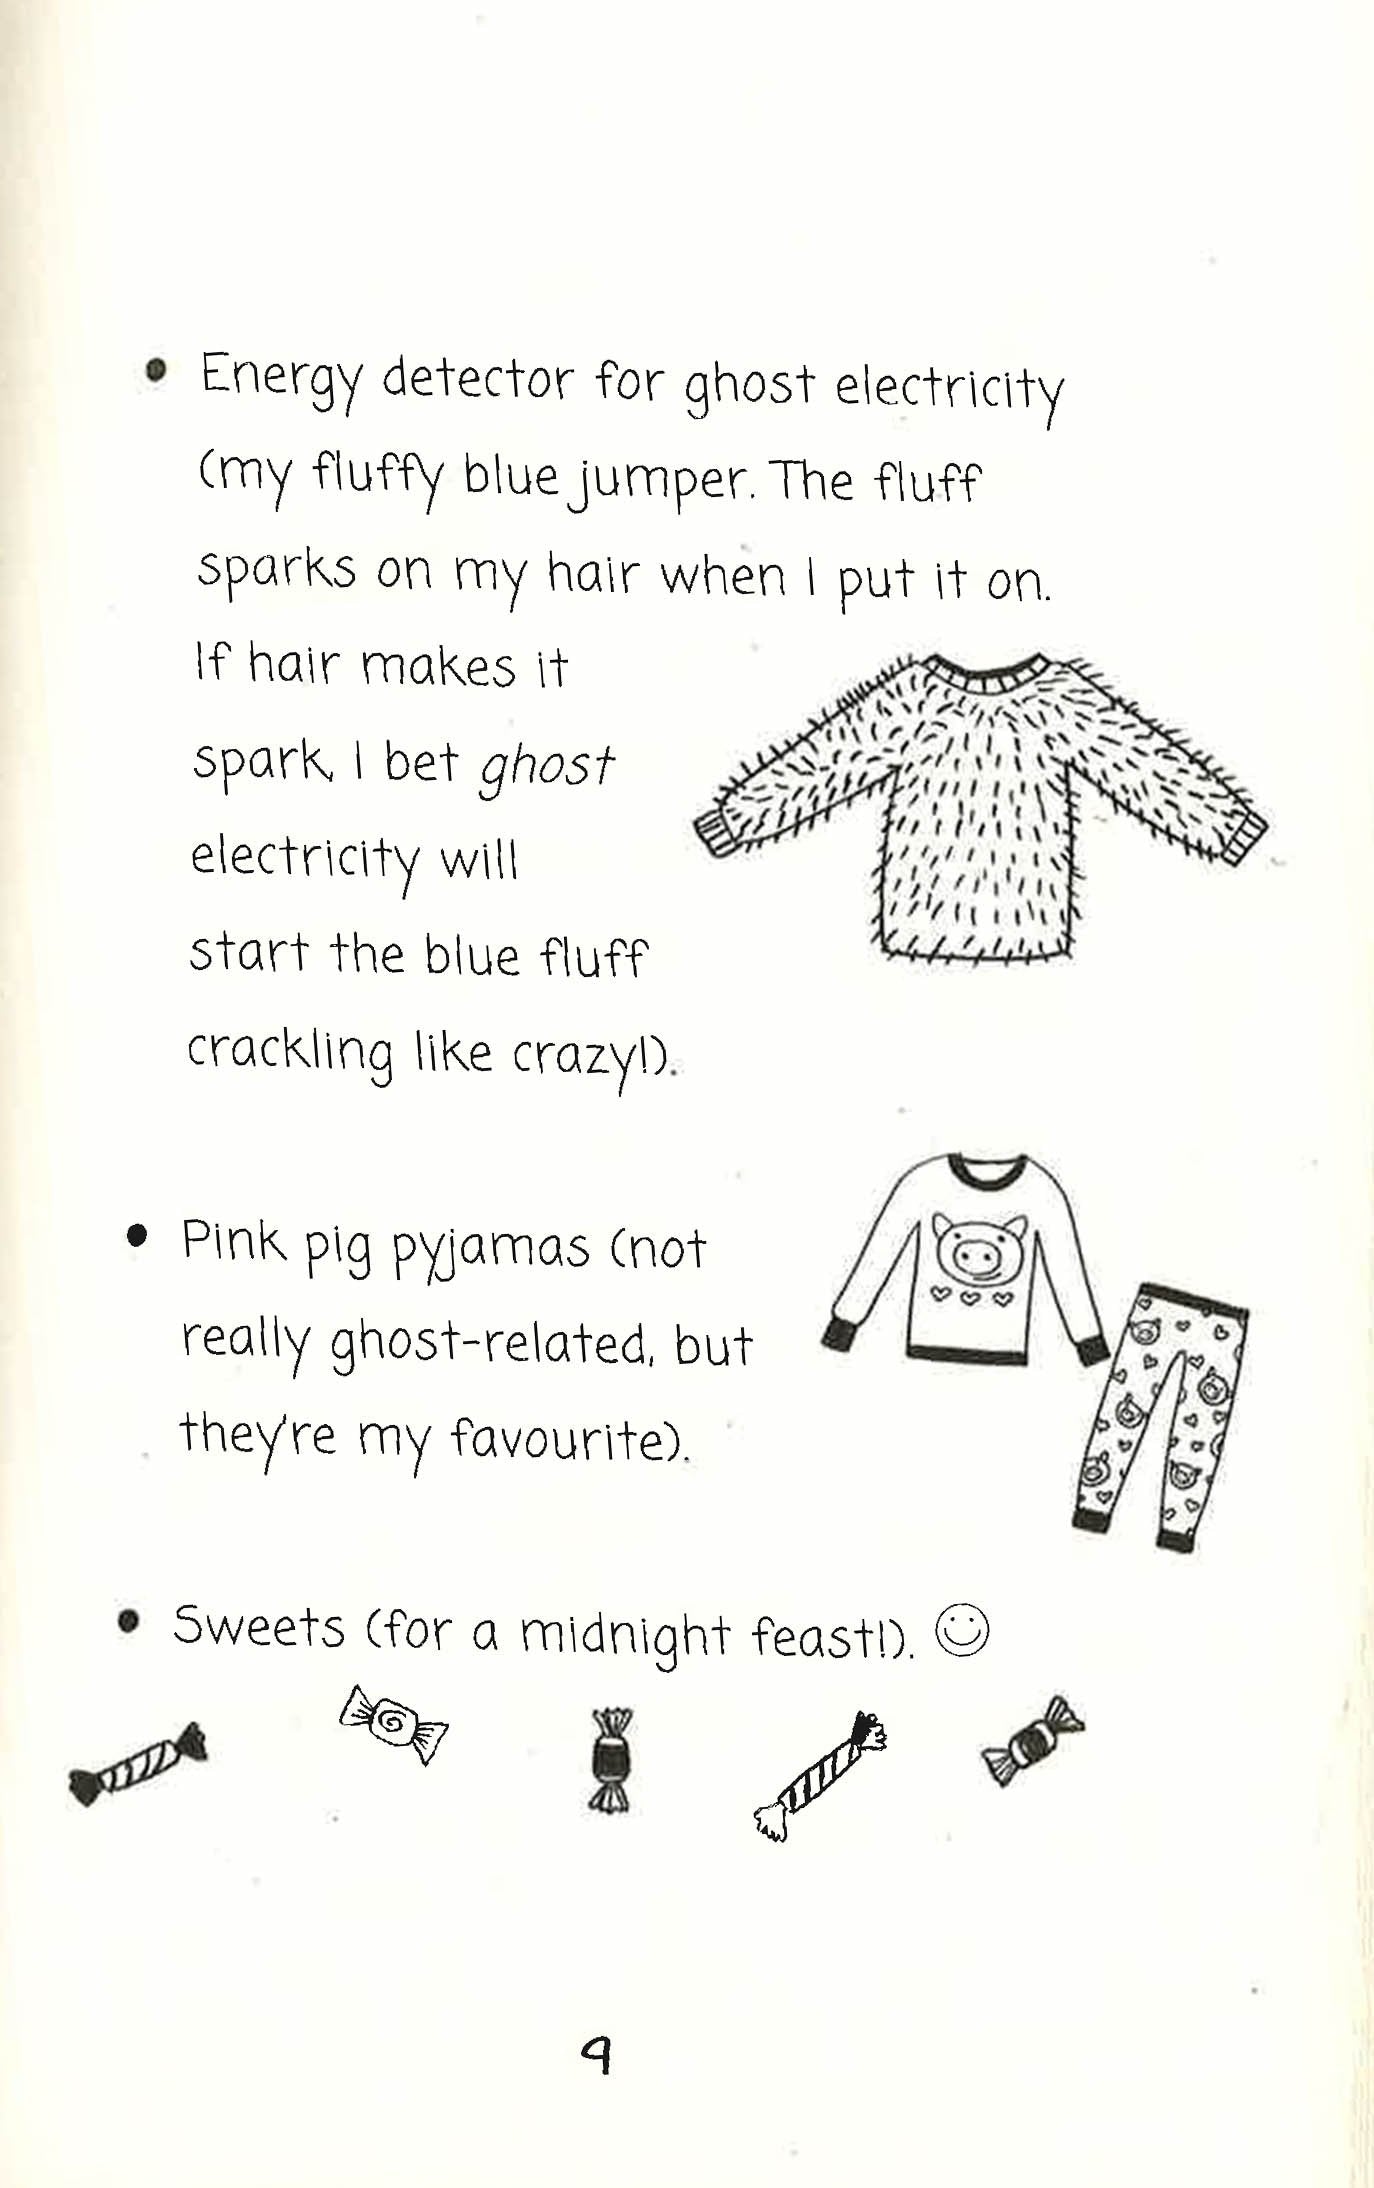 • Energy detector for ghost electricity
(my fluffy blue jumper. The fluff
sparks on my hair when I put it on.
If hair makes it
spark, I bet ghost
electricity will
start the blue fluff
crackling like crazy!).
• Pink pig pyjamas (not
really ghost-related, but
they're my favourite).
• Sweets (for a midnight feast!). ☺
9